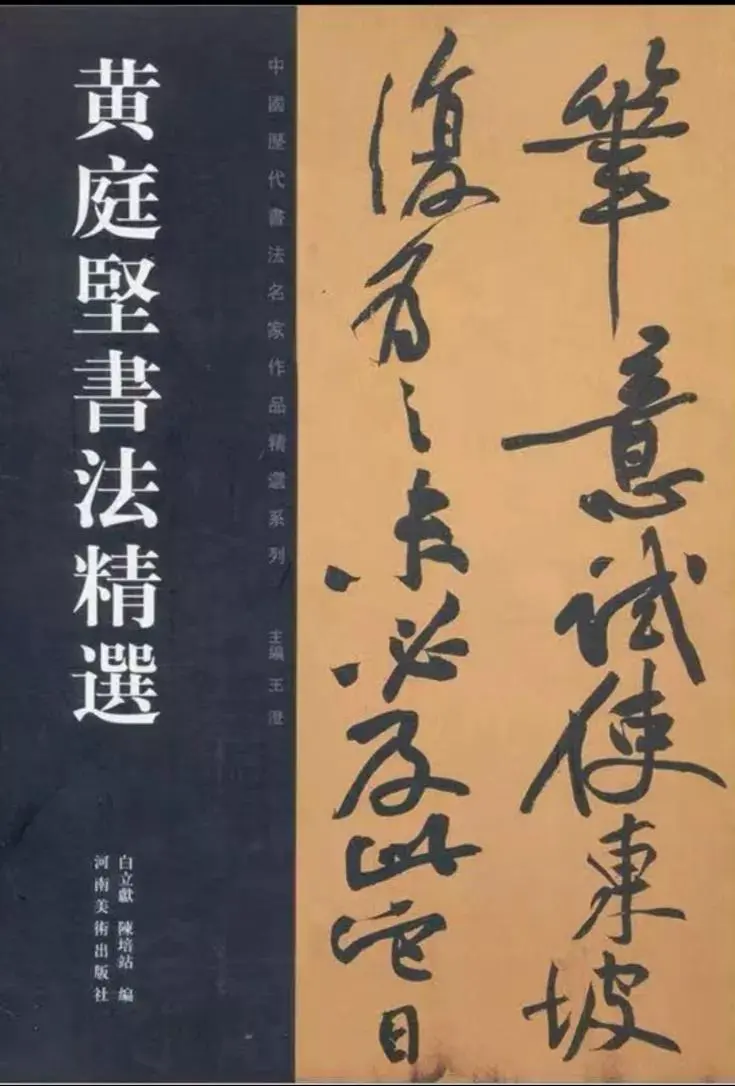 筆意試使東坡
復為之未必及此它日
中國歷代書法名家作品精選系列 主編 王澄
黄庭堅書法精選
白立獻 陳培站 編
河南美術出版社